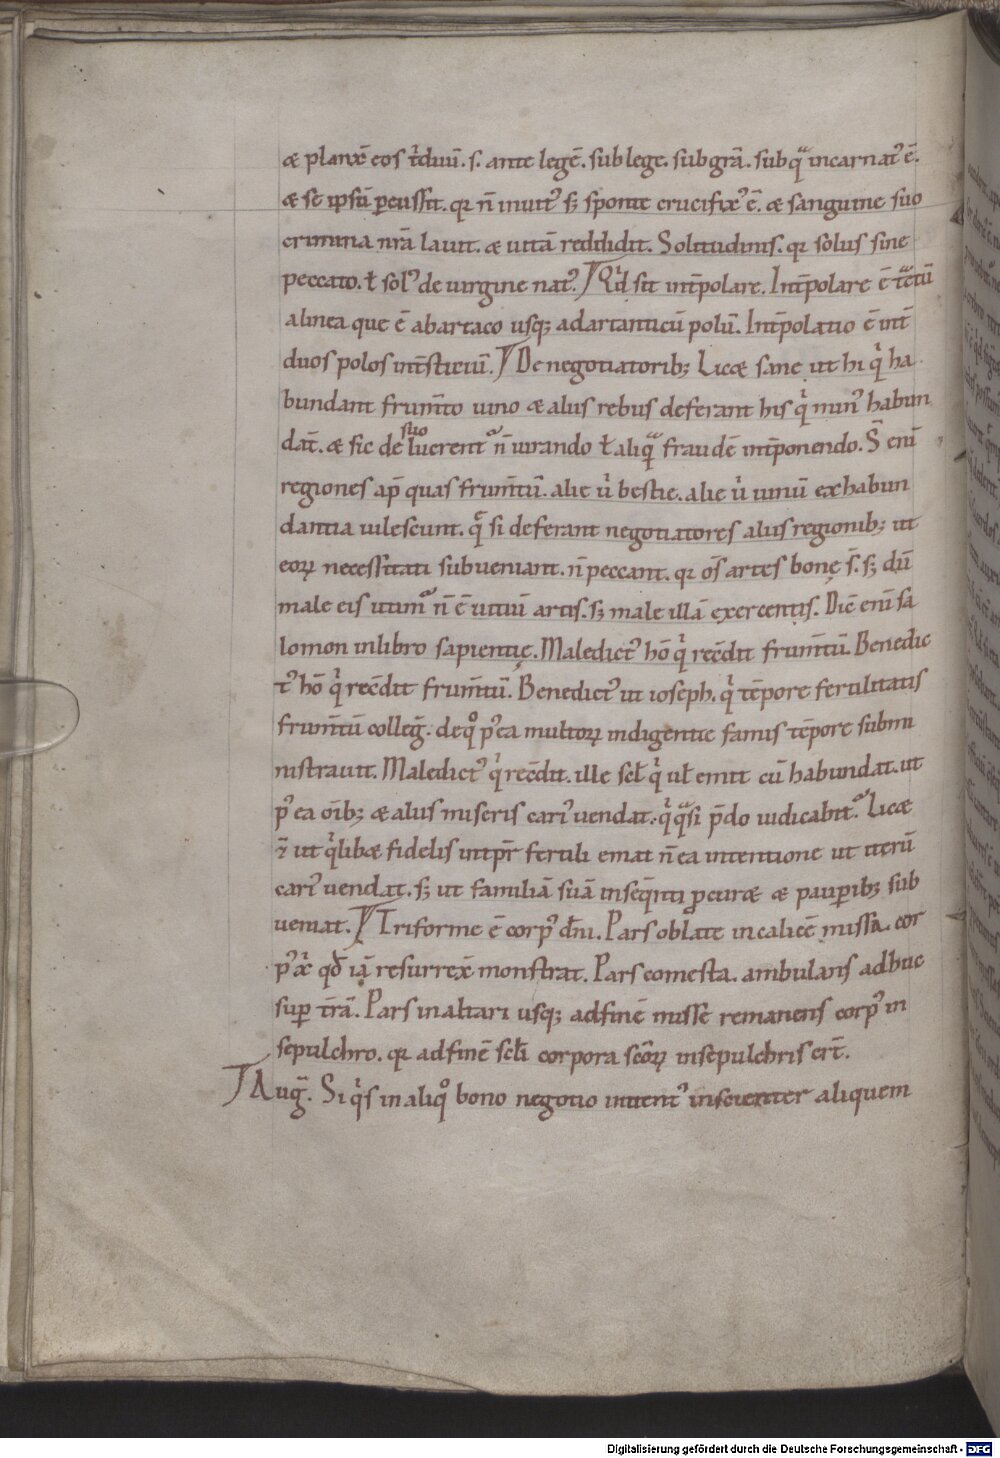 & planx̄ eos t̄duū. s. ante legē. sub lege. sub grā. sub qͣ incarnatꝰ ē.
& se ipsū ꝑcussit. qꝛ n̄ inuitꝰ sꝫ sponte crucifixꝰ ē. & sanguine suo
crimina nr̄a lauit. & uitā reddidit. Solitudinis. qꝛ solus sine
peccato. ł solꝰ de uirgine natꝰ. Qͥd sit int̄polare. Int̄polare ē
alinea que ē abartaco usqꝫ adartanticū polū. Int̄polatio ē int̄
duos polos int̄sticiū. De negotiatoribꝫ Lic& sane ut hi qͥ ha
bundant frum̄to uino & aliis rebus deferant his qͥ minꝰ habun
dāt. & sic de suo luerentᷣ n̄ iurando ł aliqͣ fraudē int̄ponendo. S̄ eni
regiones ap̄ quas frum̄tū. alie ů bestie. alie ů uinū ex habun
dantia uilescunt. qͦ si deferant negotiatores aliis regionibꝫ ut
eoꝝ necessitati subueniant. n̄ peccant. qꝛ oīs artes bonę s̄. sꝫ dū
male eis utimᷣ n̄ ē uitiū artis. sꝫ male illā exercentis. Dic̄ eni sa
lomon in libro sapientię. Maledictꝰ hō qͥ rec̄dit frum̄tū. Benedic
tꝰ hō qͥ rec̄dit frum̄tū. Benedictꝰ ut ioseph. qͥ tēpore fertilitatis
frum̄tū colleḡ. de qͦ pꝰea multoꝝ indigentie famis tēpore submi
nistrauit. Maledictꝰ qͥ rec̄dit. ille scł qͥ uł emit cū habundat. ut
pꝰea oībꝫ & aliis miseris cariꝰ uendat. qͥ qͣsi p̄do iudicabitᷣ. Lic&
ut qͥlib& fidelis int̄pr̄ fertili emat n̄ ea intentione ut iterū
cariꝰ uendat. sꝫ ut familiā suā inseq̄nti ꝓcur& & pauꝑibꝫ sub
ueniat. Triforme ē corpꝰ dn̄i. Pars oblate in calicē missa. cor
pꝰ xͥ qd̄ iā resurrex̄ monstrat. Pars comesta. ambulans adhuc
suꝑ t̄rā. Pars in altari usqꝫ ad finē misse remanens corpꝰ in
sepulchro. qꝛ ad finē scłi corpora sc̄oꝝ in sepulchris er̄t.
Auḡ. Si qͥs in aliqͦ bono negotio inuenitꝰ inseienter aliquem